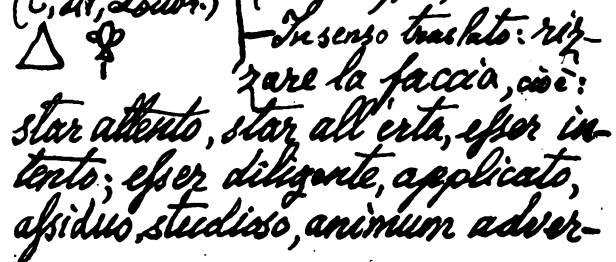 (C, XIV, Louvr.)
In senso traslato: riz-
zare la faccia, cioè:
star attento, star all'erta, esser in-
tento; esser diligente, applicato,
assiduo, studioso, animum adver-